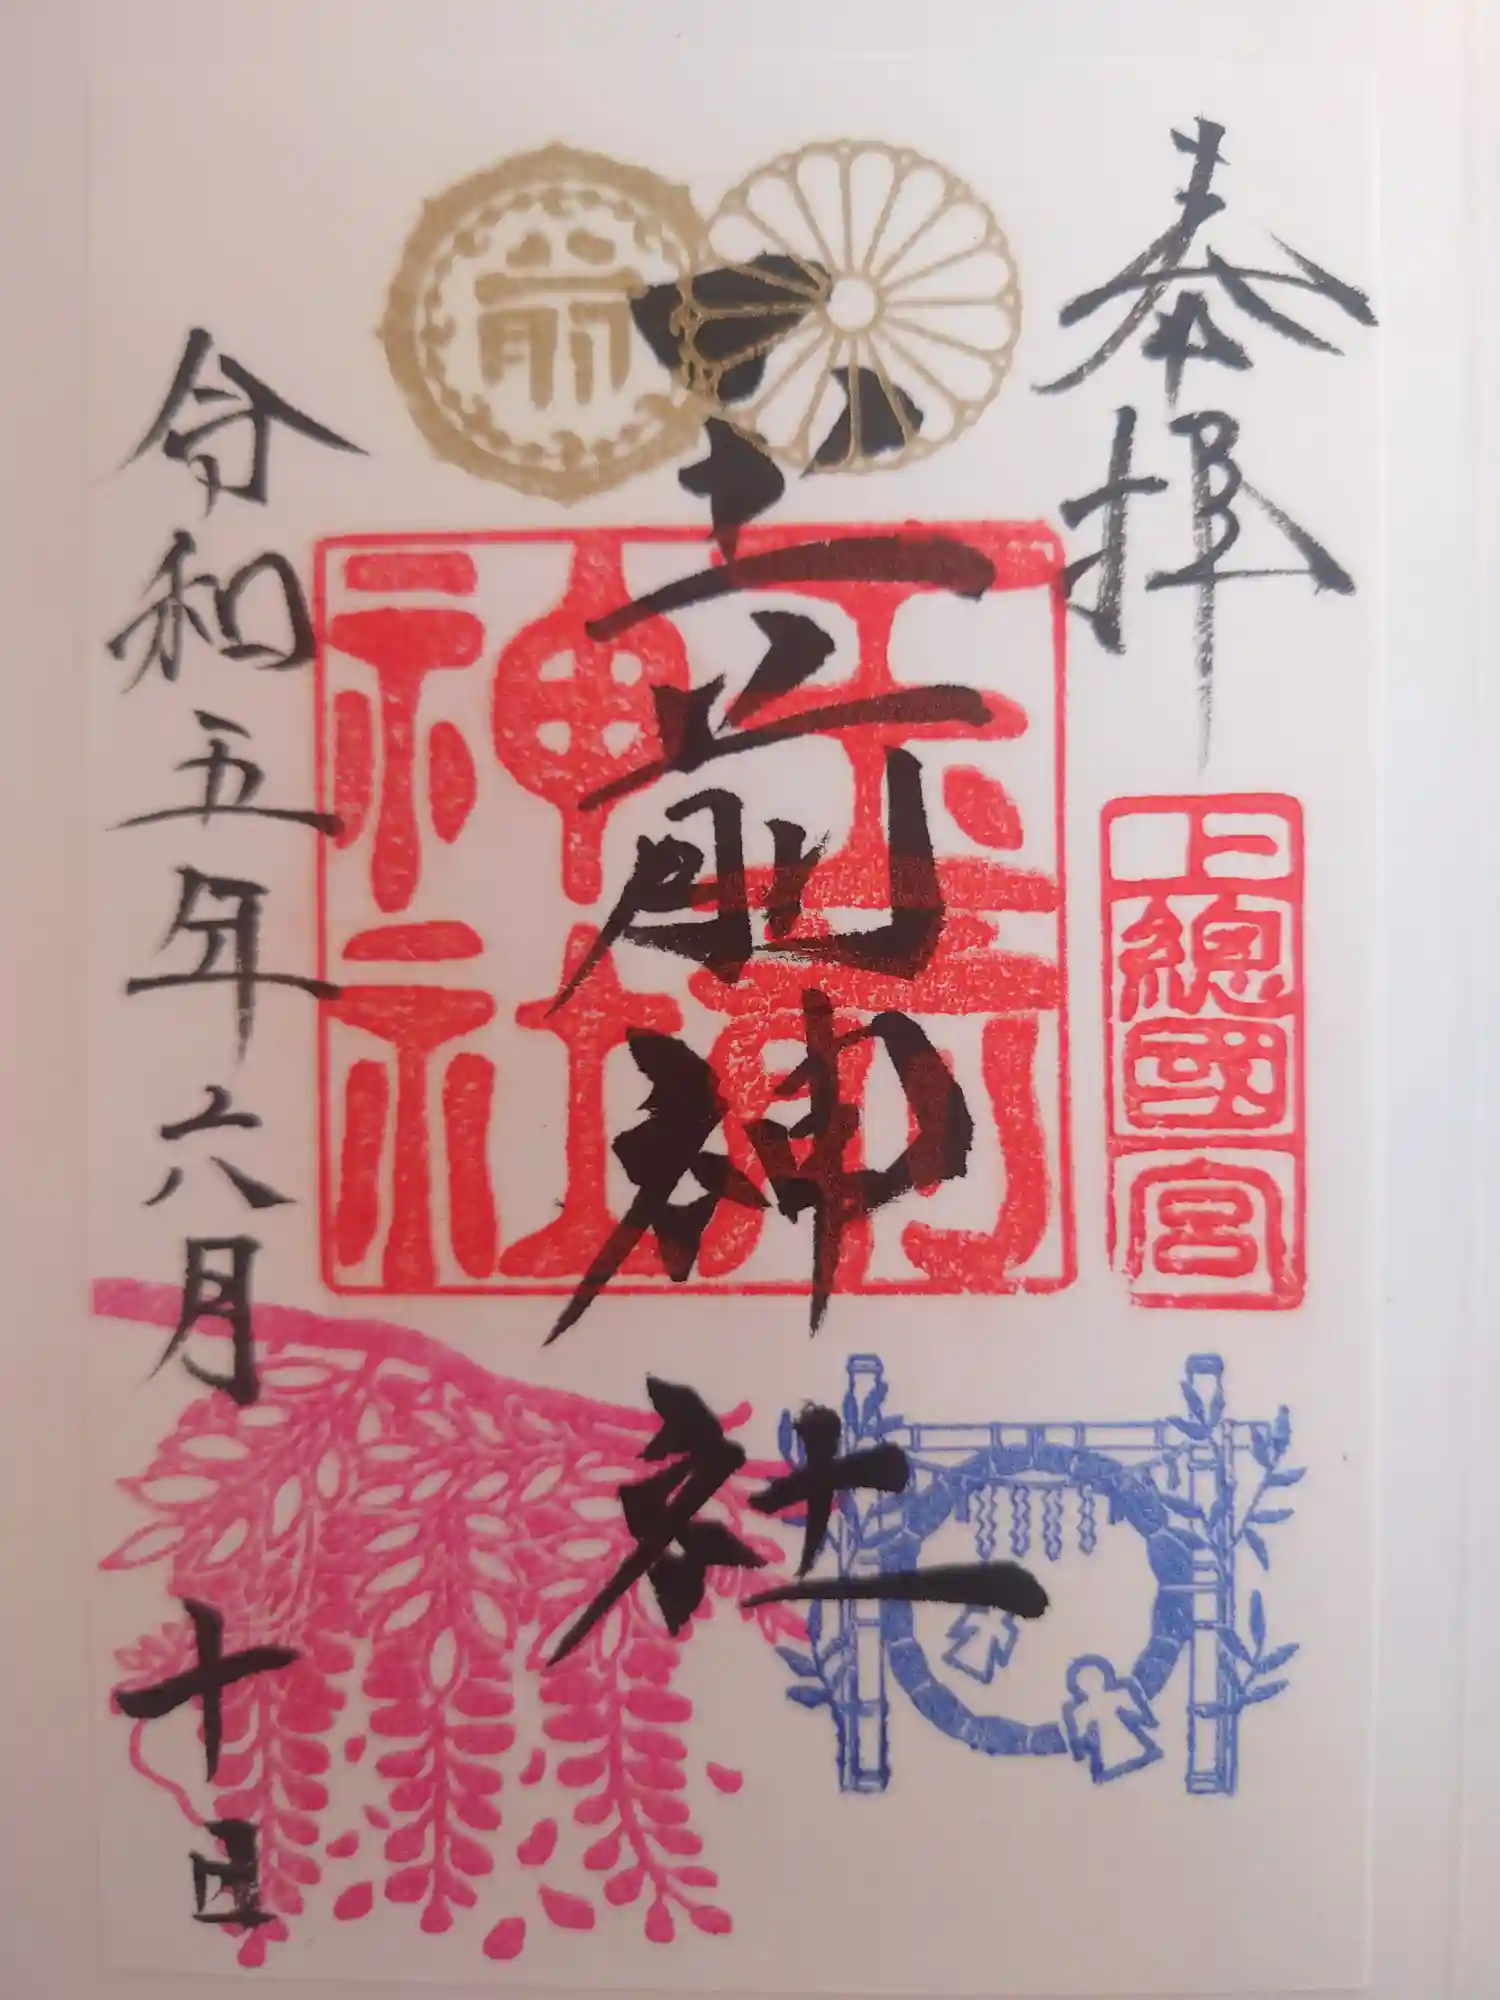 奉拝
上總國一宮
玉前神社
玉前
神社
令和五年六月十日